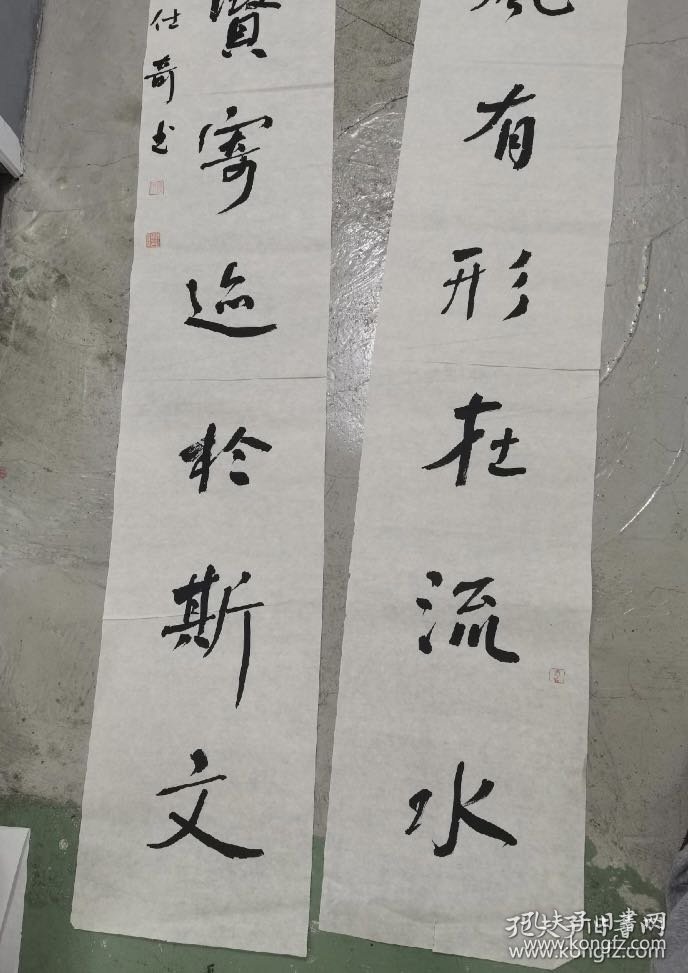 有形在流水
賢寄迹於斯文
仕奇书
孔夫子旧书网
www.kongfz.com